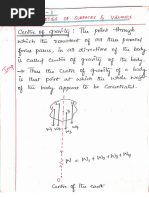 PROPERTIES OF SURFACES & VOLUMES
Centre of gravity : The point through
which the resultant of all the parallel
forces passes, in any direction of the body
is called Centre of gravity of the body.
→ Thus the Centre of gravity of a body
is that point at which the whole weight
of the body appear to be Concentrated.
Imp
W = W1 + W2 + W3 + W4
W1 W2 W3 W4
Centre of the